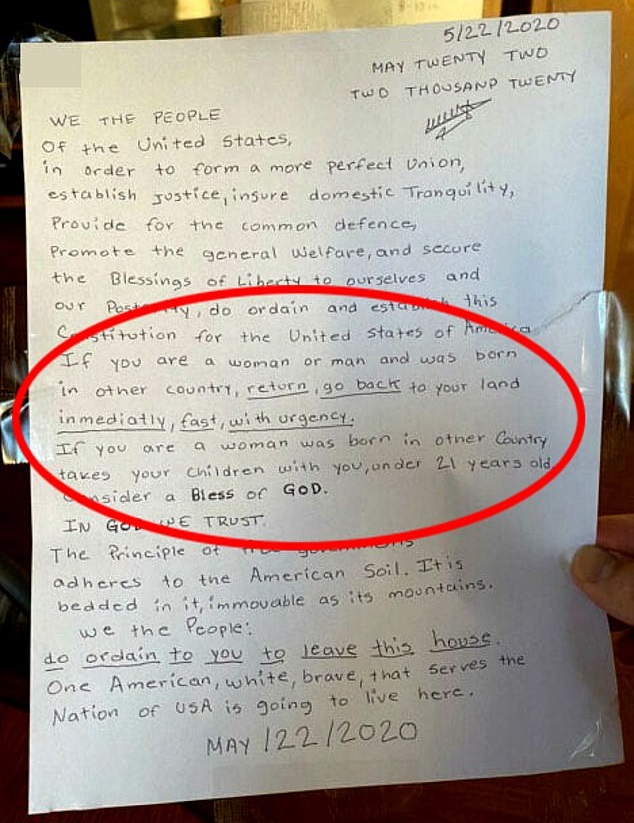 5/22/2020
MAY TWENTY TWO
TWO THOUSAND TWENTY
WE THE PEOPLE
Of the United States,
in order to form a more perfect Union,
establish Justice, insure domestic Tranquility,
Provide for the common defence,
Promote the general Welfare, and secure
the Blessings of Liberty to ourselves and
our Posterity, do ordain and establish this
Constitution for the United States of America
If you are a woman or man and was born
in other country, return, go back to your land
inmediatly, fast, with urgency.
If you are a woman was born in other Country
takes your children with you, under 21 years old
Consider a Bless of GOD.
IN GOD WE TRUST.
The Principle of governments
adheres to the American Soil. It is
bedded in it, immovable as its mountains.
we the People:
do ordain to you to leave this house.
One American, white, brave, that serves the
Nation of USA is going to live here.
MAY /22/2020